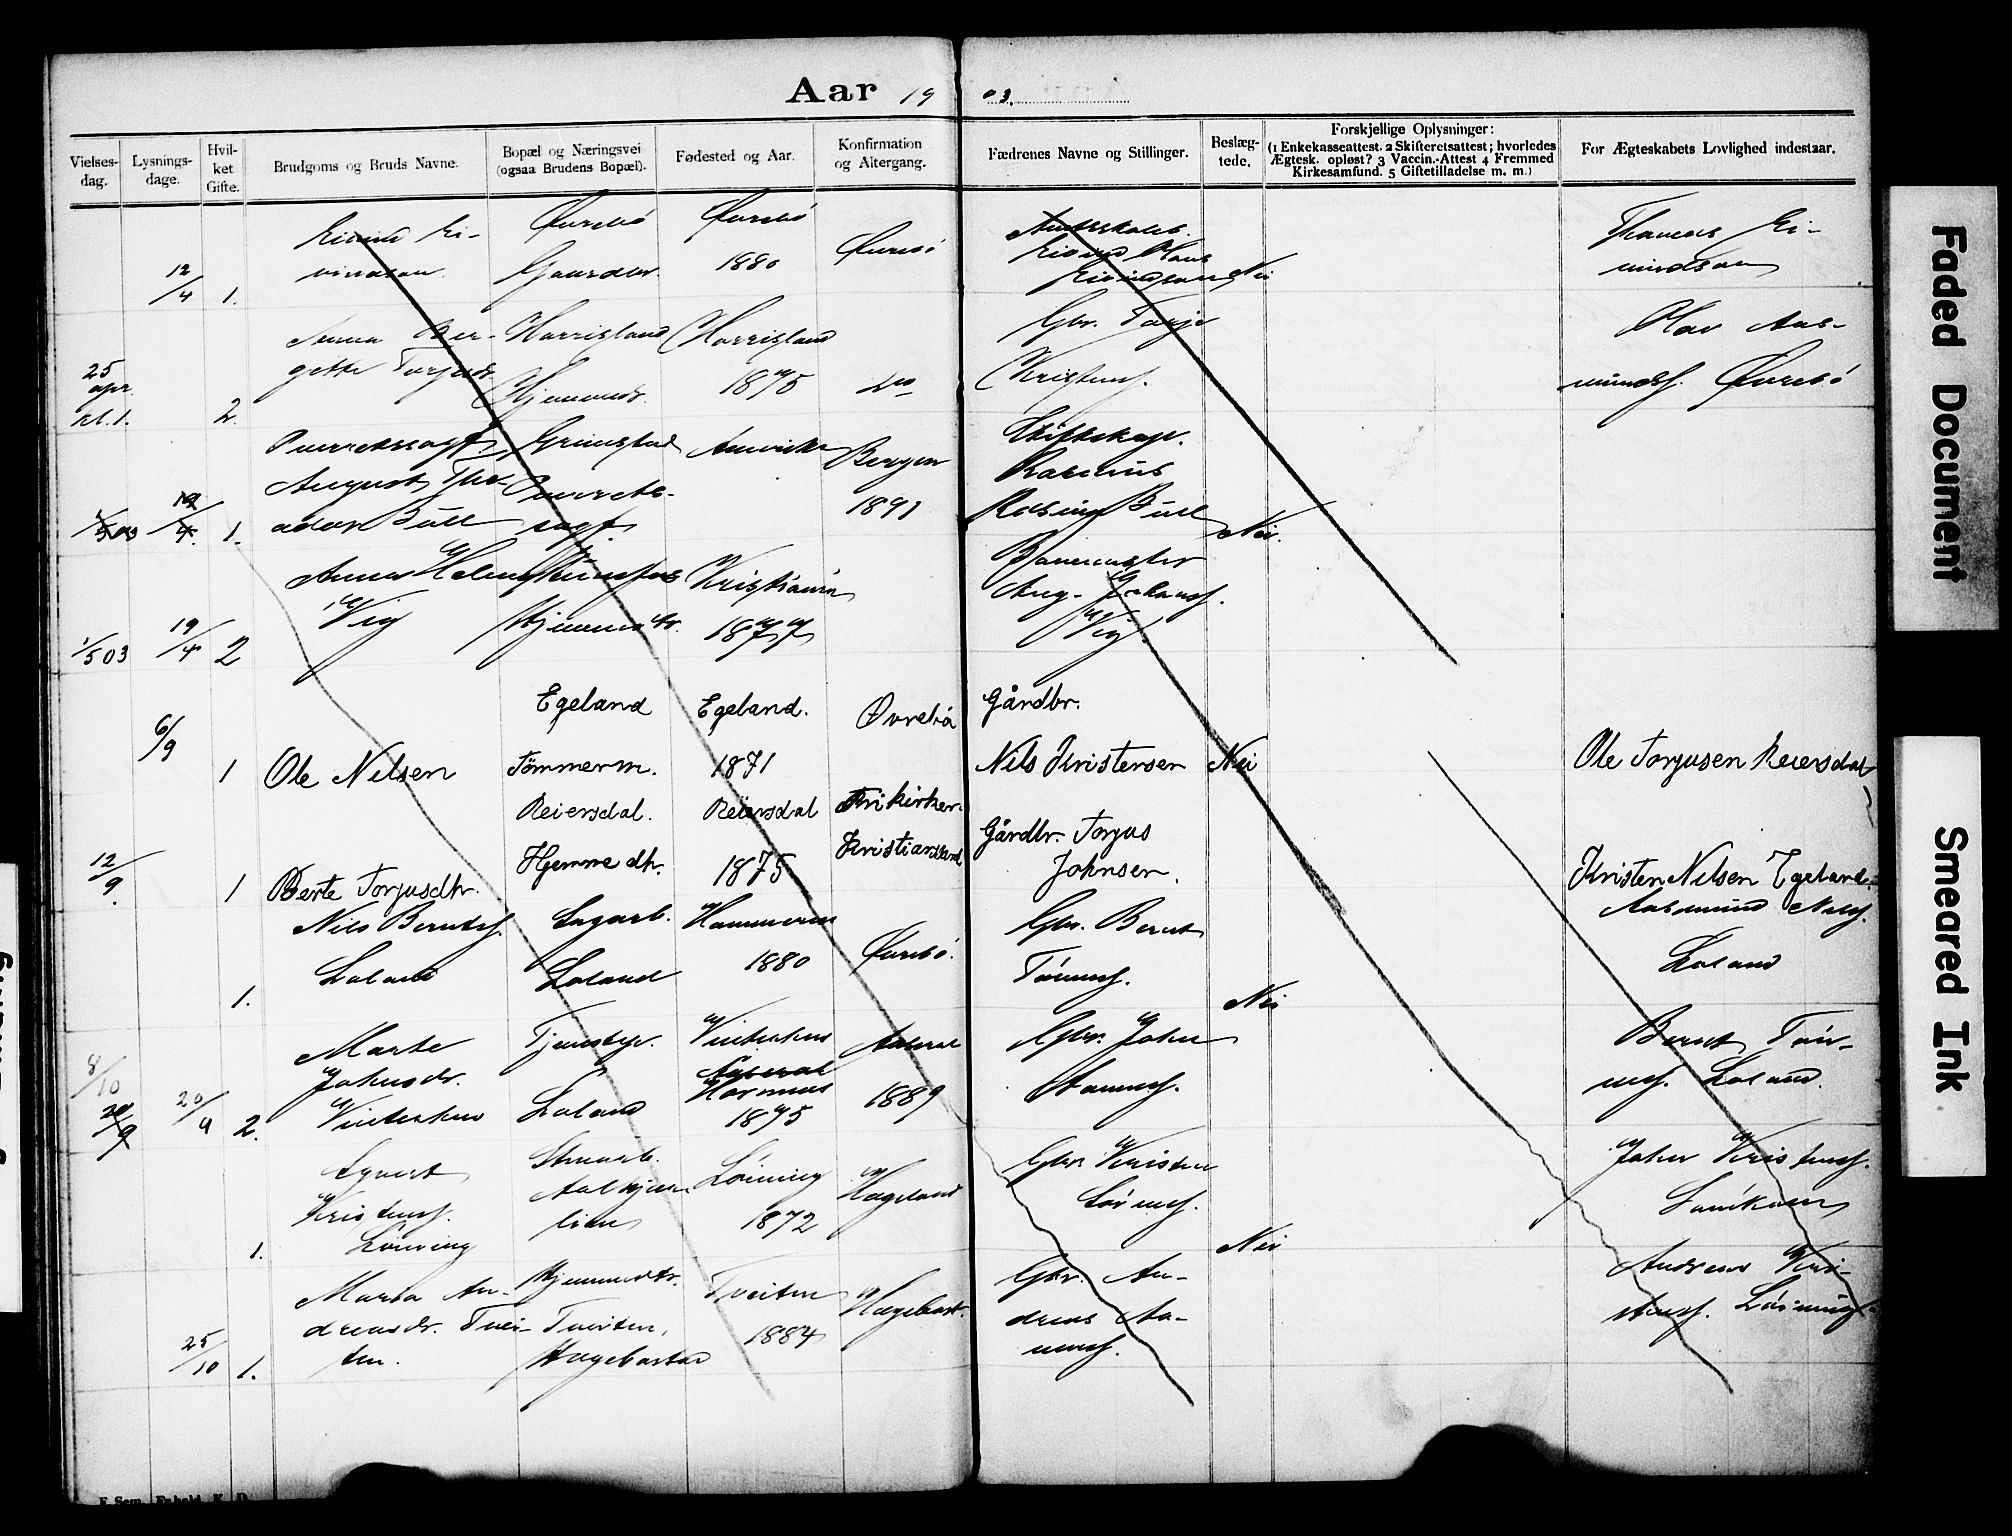 Aar 19 03.
Vielses-
dag.
Lysnings-
dage.
Hvil-
ket
Gifte.
Brudgoms og Bruds Navne.
Bopæl og Næringsvei
(ogsaa Brudens Bopæl).
Fødested og Aar.
Konfirmation
og Altergang.
Fædrenes Navne og Stillinger.
Beslæg-
tede.
Forskjellige Oplysninger:
(1 Enkekasseattest. 2 Skifteretsattest; hvorledes
Ægtesk. opløst? 3 Vaccin.-Attest 4 Fremmed
Kirkesamfund. 5 Giftetilladelse m. m.)
For Ægteskabets Lovlighed indestaar.
12/4
1.
Øvrebø
Gaardbr.
Øvrebø
1880
Øvrebø
Nei
25
apr.
kl. 1.
2.
Anna Ber-
gitte Torjusdr.
Harrisland
Hjemmedr.
Harrisland
1875
do
Gbr. Torje
Kristens.
Olav Aas-
munds. Øvrebø
1/5 03
19/4.
1.
Overretssagf.
August The-
odor Bull
Grimstad
Overrets-
sagf.
Amerika
Bergen
1891
Rasmus
Rolsing Bull
Nei.
1/5 03
19/4
2
Anna Helene
Vig
Grimstad
Hjemmedr.
Kristiania
1877
Banemester
Aug. Johans.
Vig.
6/9
1
Ole Nilsen
Egeland
Tømmerm.
Egeland.
1871
Øvrebø
Gårdbr.
Nils Kristensen
Nei
Ole Torjusen Reiersdal
12/9.
1
Berte Torjusdtr.
Reiersdal.
Hjemme dtr.
Reiersdal
1875
Frikirken.
Kristiansand
Gårdbr. Torjus
Johnsen.
Kristen Nilsen Egeland.
1.
Nils Bernts.
Loland
Sagarb.
Loland
Hammeren
1880
Øvrebø.
Gbr. Bernt
Tønnes.
Nei
Aasmund Nils.
Loland
8/10
20/9
20/9
2.
Marte
Johnsdr.
Vinterhus
Tjenestep.
Loland
Vinterhus
Aaseral
Hornnes
1875
Aaseral
1889
Gbr. John
Bernt Tøn-
nes. Loland.
1.
Kristens.
Lønning
Aalkjær-
lien
Lønning
1872
Hægeland
Gbr. Kristen
Nei
John Kristens.
25/10
1.
Maria An-
dreasdr. Tvei-
ten.
Hjemmedtr.
Tveiten,
Hægebostad
Tveiten
1884
Hægebost.
Gbr. An-
dreas Aa-
nens.
Andreas Kri-
stens. Lønning
Faded Document
Smeared Ink